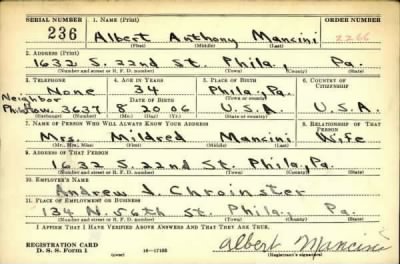 SERIAL NUMBER 1. NAME (Print) ORDER NUMBER
236 Albert Anthony Mancini 2266
(First) (Middle) (Last)
2. ADDRESS (Print)
1632 S. 22nd St. Phila., Pa.
(Number and street or R. F. D. number) (Town) (County) (State)
3. TELEPHONE 4. AGE IN YEARS 5. PLACE OF BIRTH 6. COUNTRY OF CITIZENSHIP
None 34 Phila., Pa.
Neighbor DATE OF BIRTH (Town or county)
3637 8 20 06 U.S.A. U.S.A.
(Mo.) (Day) (Yr.) (State or country)
7. NAME OF PERSON WHO WILL ALWAYS KNOW YOUR ADDRESS 8. RELATIONSHIP OF THAT PERSON
Mrs. Mildred Mancini Wife
(Mr., Mrs., Miss) (First) (Middle) (Last)
9. ADDRESS OF THAT PERSON
1632 S. 22nd St. Phila., Pa.
(Number and street or R. F. D. number) (Town) (County) (State)
10. EMPLOYER'S NAME
Andrew J Chroinster
11. PLACE OF EMPLOYMENT OR BUSINESS
134 N. 56th St. Phila., Pa.
(Number and street or R. F. D. number) (Town) (County) (State)
I AFFIRM THAT I HAVE VERIFIED ABOVE ANSWERS AND THAT THEY ARE TRUE.
REGISTRATION CARD
D. S. S. Form 1 16—17105 Albert Mancini
(Registrant's signature)